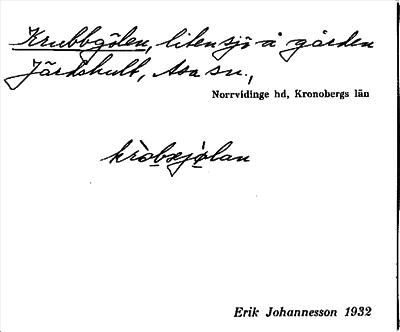 Krubbgölen, liten sjö å gården
Järdshult, Asa sn.,
Norrvidinge hd, Kronobergs län
kròbəjölan
Erik Johannesson 1932